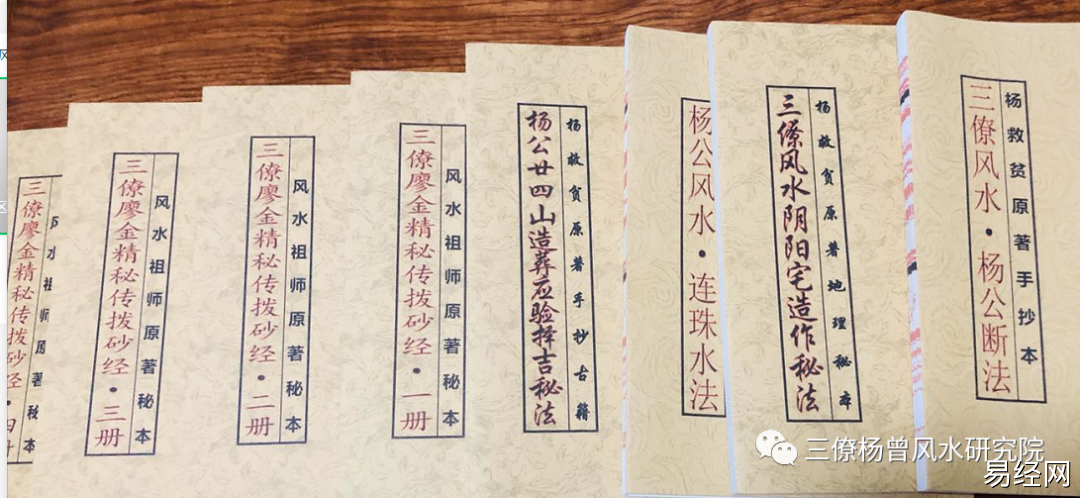 风水祖师原著秘本
三僚廖金精秘传拨砂经·四册
风水祖师原著秘本
三僚廖金精秘传拨砂经·三册
风水祖师原著秘本
三僚廖金精秘传拨砂经·二册
风水祖师原著秘本
三僚廖金精秘传拨砂经·一册
杨救贫原著手抄古籍
杨公廿四山造葬应验择吉秘法
杨公风水·连珠水法
杨救贫原著地理秘本
三僚风水阴阳宅造作秘法
杨救贫原著手抄本
三僚风水·杨公断法
三僚杨曾风水研究院
易经网